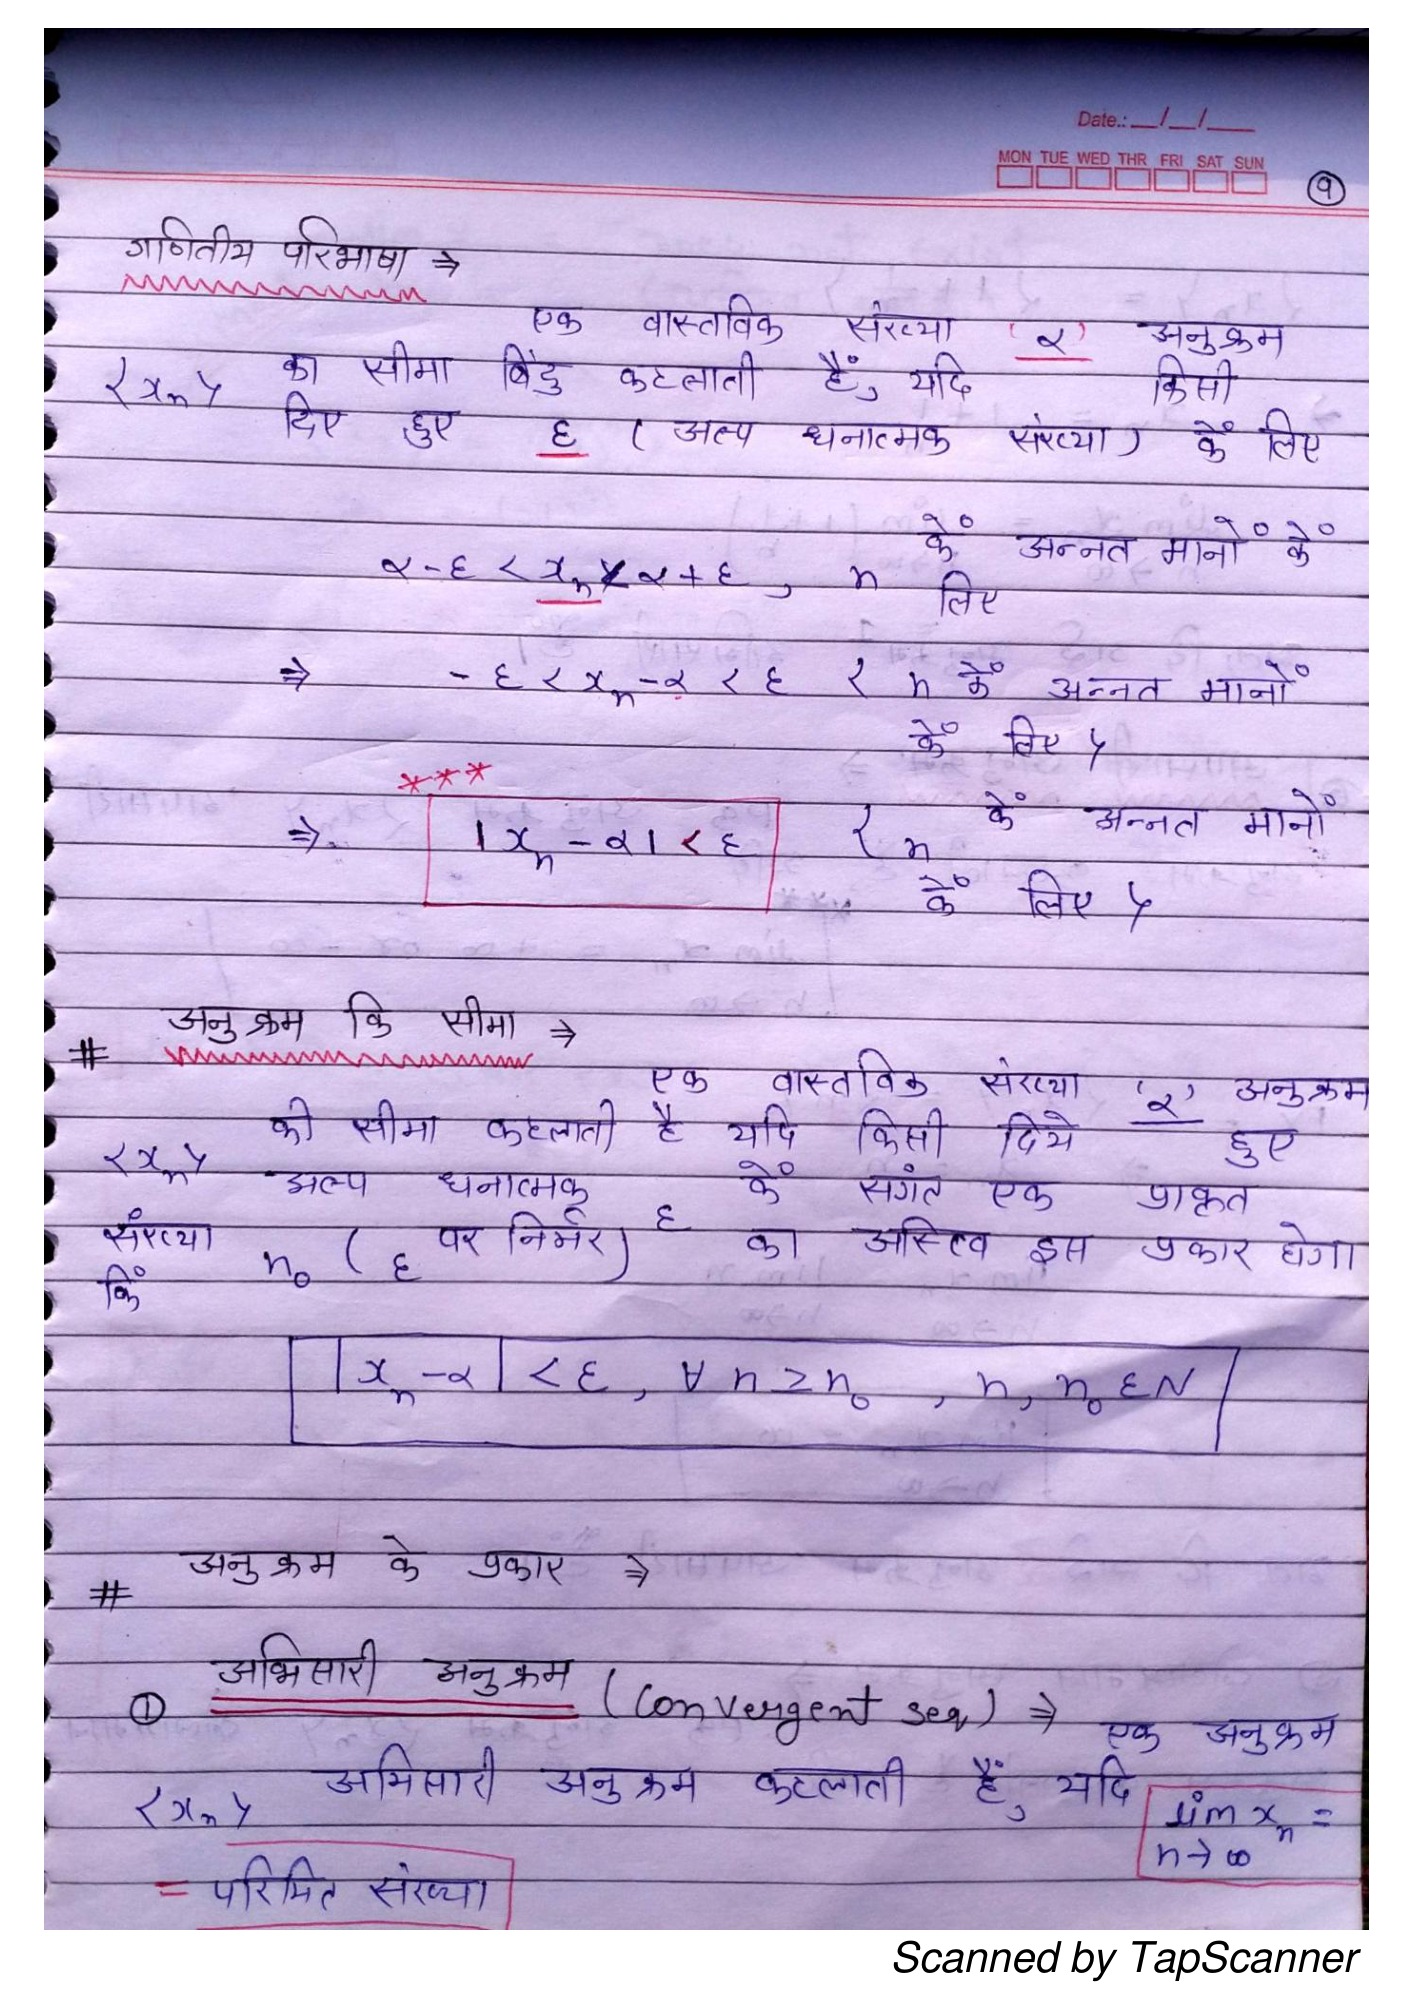 Date.: __/__/__
MON TUE WED THR FRI SAT SUN
9
गणितीय परिभाषा ⇒
एक वास्तविक संख्या 'α' अनुक्रम
<xₙ> का सीमा बिंदु कहलाती हैं, यदि किसी
दिए हुए ε (अल्प धनात्मक संख्या) कें लिए
α-ε < xₙ < α+ε, n कें अन्नत मानों कें
लिए
⇒ -ε < xₙ-α < ε { n कें अन्नत मानों
कें लिए }
***
⇒ |xₙ - α| < ε { n कें अन्नत मानों
कें लिए }
# अनुक्रम कि सीमा ⇒
एक वास्तविक संख्या 'α' अनुक्रम
<xₙ> की सीमा कहलाती है यदि किसी दिये हुए
अल्प धनात्मक ε कें सगंत एक प्राकृत
संख्या n₀ (ε पर निर्भर) का अस्तित्व इस प्रकार होगा
किं
|xₙ-α| < ε, ∀ n ≥ n₀, n, n₀ ε N
# अनुक्रम के प्रकार ⇒
① अभिसारी अनुक्रम (Convergent seq) ⇒
एक अनुक्रम
<xₙ> अभिसारी अनुक्रम कहलाती हैं, यदि lim xₙ =
n→∞
= परिमित संख्या
Scanned by TapScanner